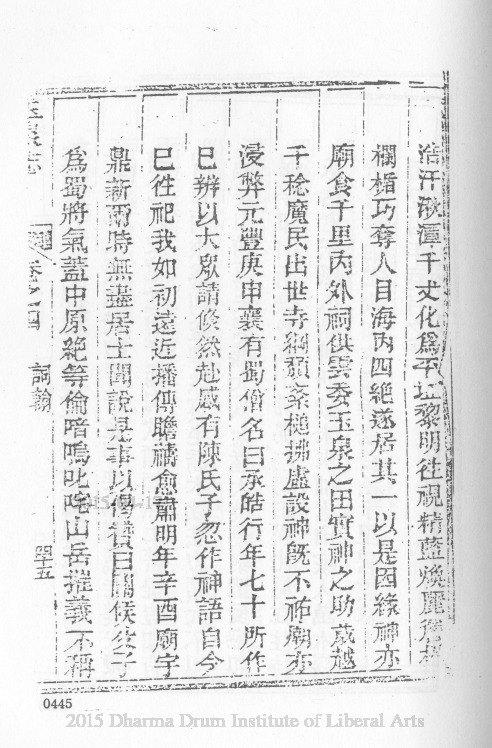 浩汗湫潭千丈化為平址黎明往視精藍煥麗簷
欄楯巧奪人目海內四絕遂居其一以是因緣神亦
廟食千里內外祠供雲委玉泉之田實神之助歲越
千稔魔民出世寺綱頹紊槌拂虛設神既不祐廟亦
浸弊元豐庚申襄有蜀僧名曰承皓行年七十所作
已辨以大眾請倏然赴感有陳氏子忽作神語自今
已徃祀我如初遠近播傳瞻禱愈肅明年辛酉廟宇
鼎新爾時無盡居士聞說是事以偈
為蜀將氣蓋中原絕等倫喑嗚叱咤山岳摧義不稱
玉泉志 卷之四 詞翰 四十五
0445
2015 Dharma Drum Institute of Liberal Arts